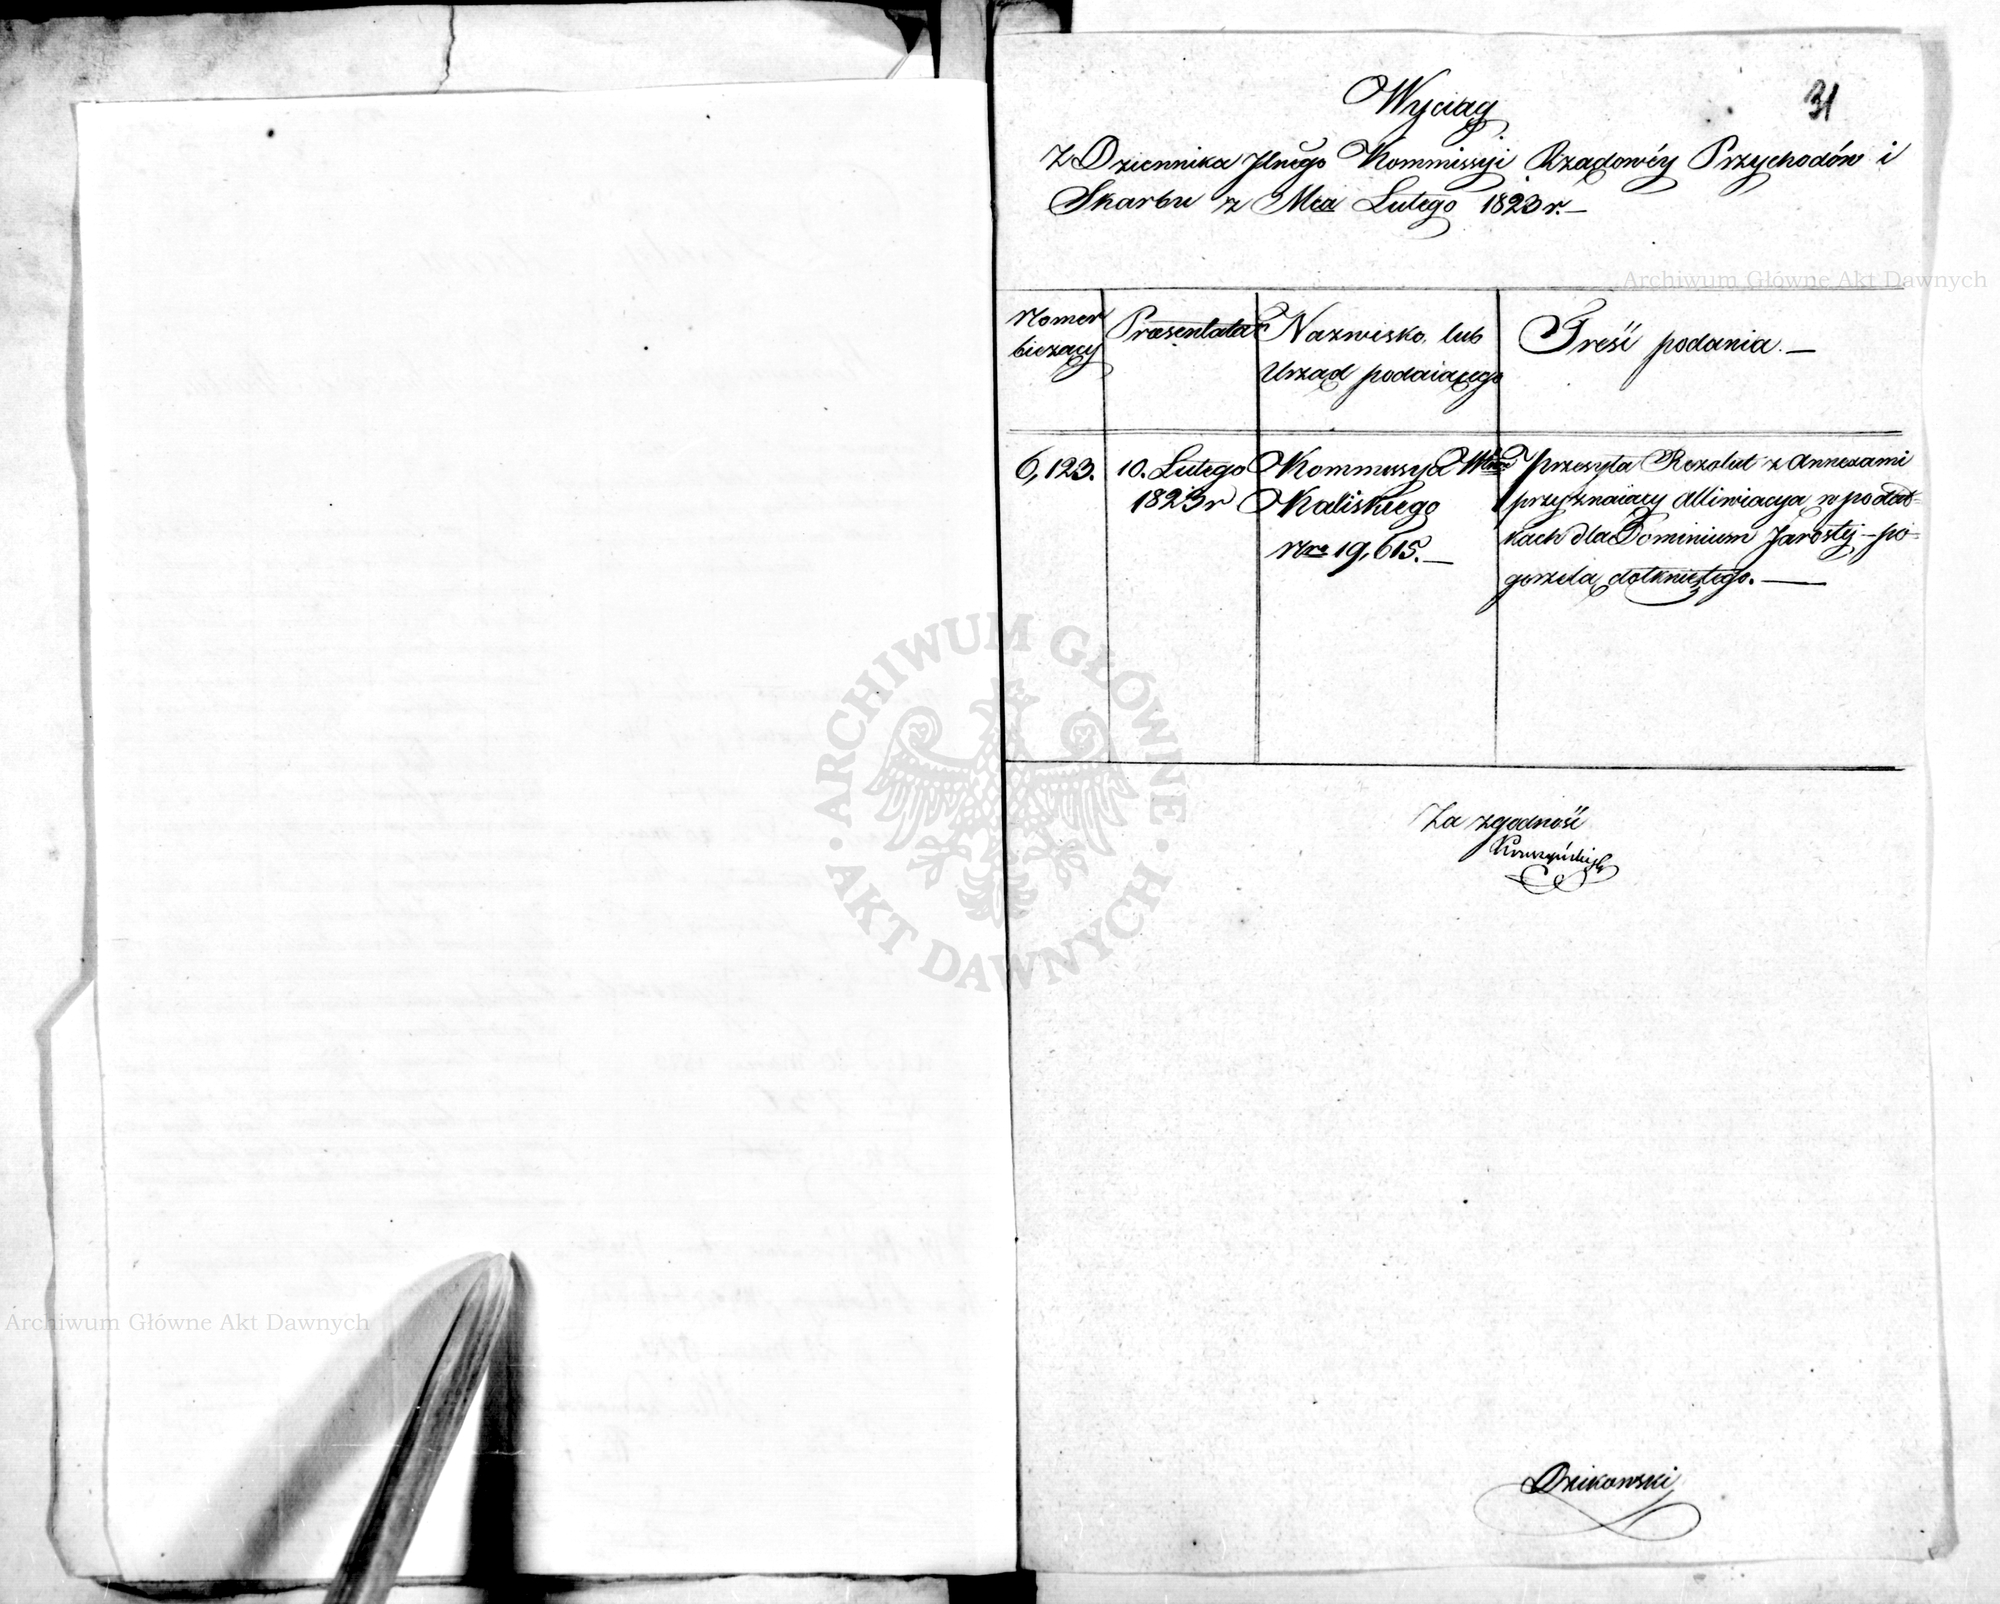 31
Wyciąg
Z Dziennika Jlnego Kommissyi Rządowéy Przychodów i
Skarbu z Mca Lutego 1823 r.—
Archiwum Główne Akt Dawnych
Nomer
bieżący
Præsentata
Nazwisko lub
Urząd podaiącego
Treść podania.—
6,123.
10. Lutego
1823 r
Kommissya Wtwa
Kaliskiego
Nro 19,615.—
przesyła Rezolut z Annexami
przyznaiący Alliwiacyą w podat=
kach dla Dominium Jarosty - po=
gorzelą dotkniętego.—
ARCHIWUM GŁÓWNE
AKT DAWNYCH
Za zgodność
Archiwum Główne Akt Dawnych
Dzikowski